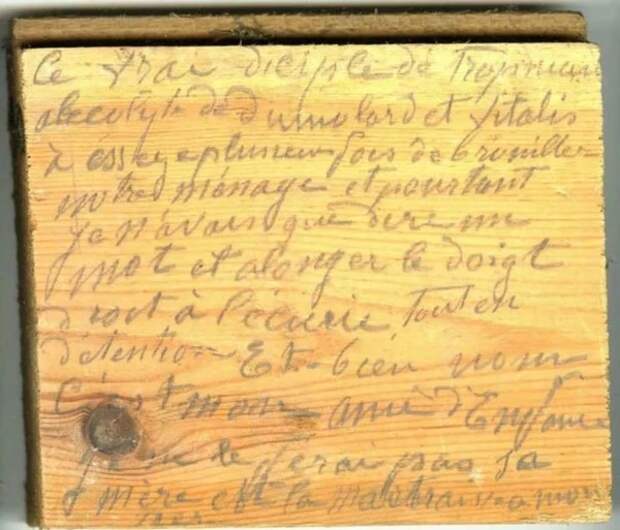 Ce vrai diciple de Tropmann
de Dumolard et Vitalis
à fois de brouiller
notre ménage et pourtant
je n'avais que dire un
mot et alonger le doigt
droit à l'écurie tout en
détention Et bien non
C'est mon ami d'Enfance
je ne le ferai pas sa
mère est la a mon